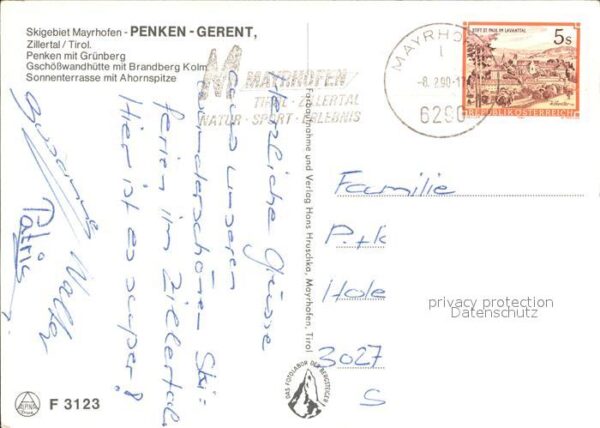 Skigebiet Mayrhofen - PENKEN - GERENT,
Zillertal / Tirol.
Penken mit Grünberg
Gschößwandhütte mit Brandberg Kolm
Sonnenterrasse mit Ahornspitze
M MAYRHOFEN
TIROL - ZILLERTAL
NATUR - SPORT - ERLEBNIS
MAYRHO
1
-8. 2.90-1
6290
STIFT ST. PAUL IM LAVANTTAL
5 S
REPUBLIK ÖSTERREICH
Herzliche Grüsse
aus unseren
wunderschönen Ski-
ferien im Zillertal.
Hier ist es super!
Susanne Walter
Patric
Fotoaufnahme und Verlag Hans Hruschka, Mayrhofen, Tirol
Familie
P. + K
Hole
3027
S
privacy protection
Datenschutz
DAS FOTOLABOR DER BERGSTEIGER
ALPINA
F 3123